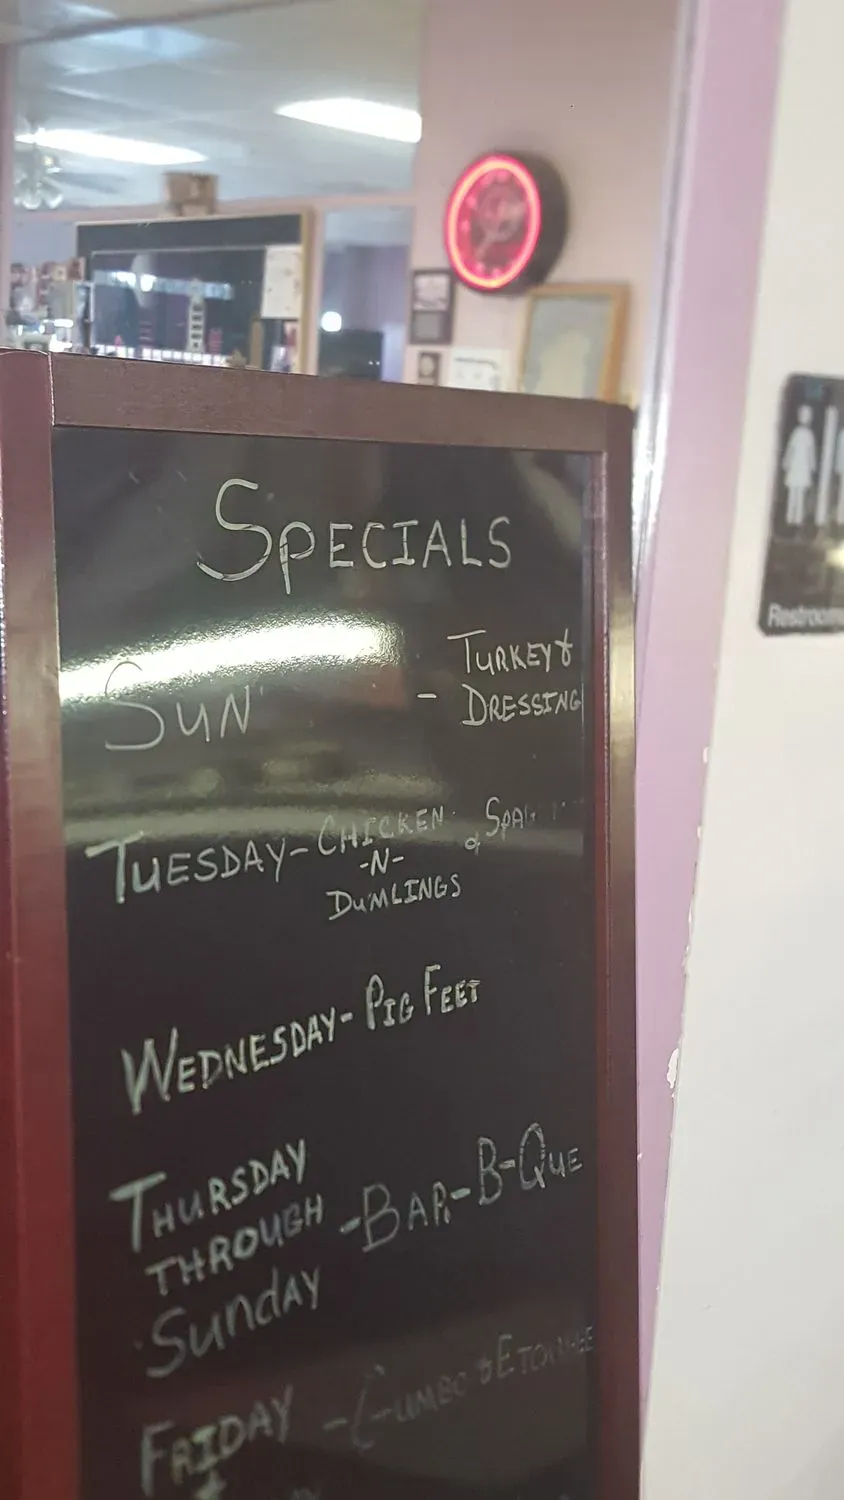 SPECIALS
SUN - TURKEY &
DRESSING
TUESDAY - CHICKEN &
-N-
DUMLINGS
WEDNESDAY - PIG FEET
THURSDAY
THROUGH - BAR-B-QUE
SUNDAY
FRIDAY - GUMBO &
&
Restrooms